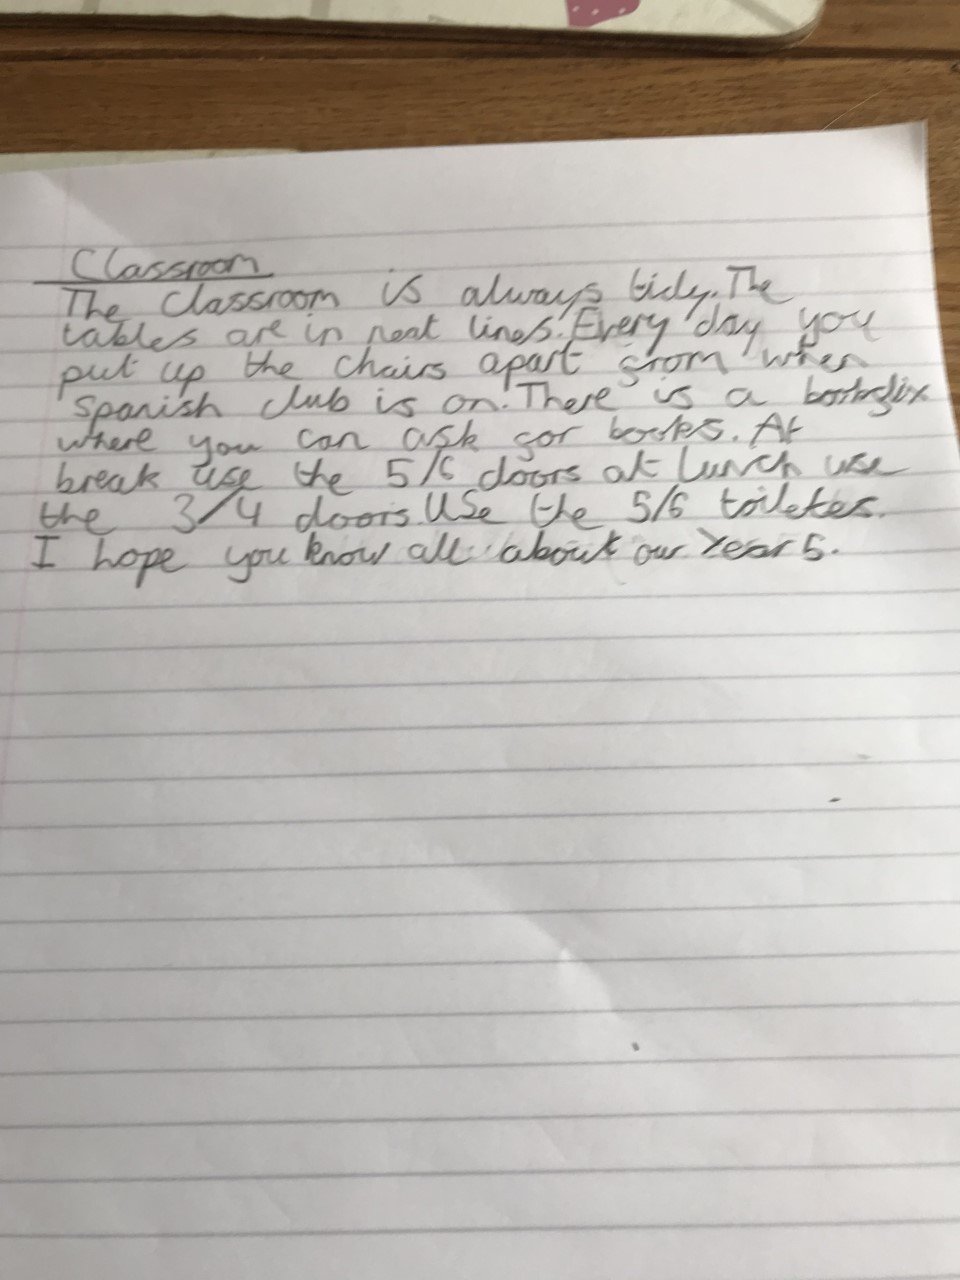 Classroom
The Classroom is always tidy. The
tables are in neat lines. Every day you
put up the chairs apart from when
Spanish club is on. There is a bookflix
where you can ask for books. At
break use the 5/6 doors at lunch use
the 3/4 doors. Use the 5/6 toiletes.
I hope you know all about our Year 5.